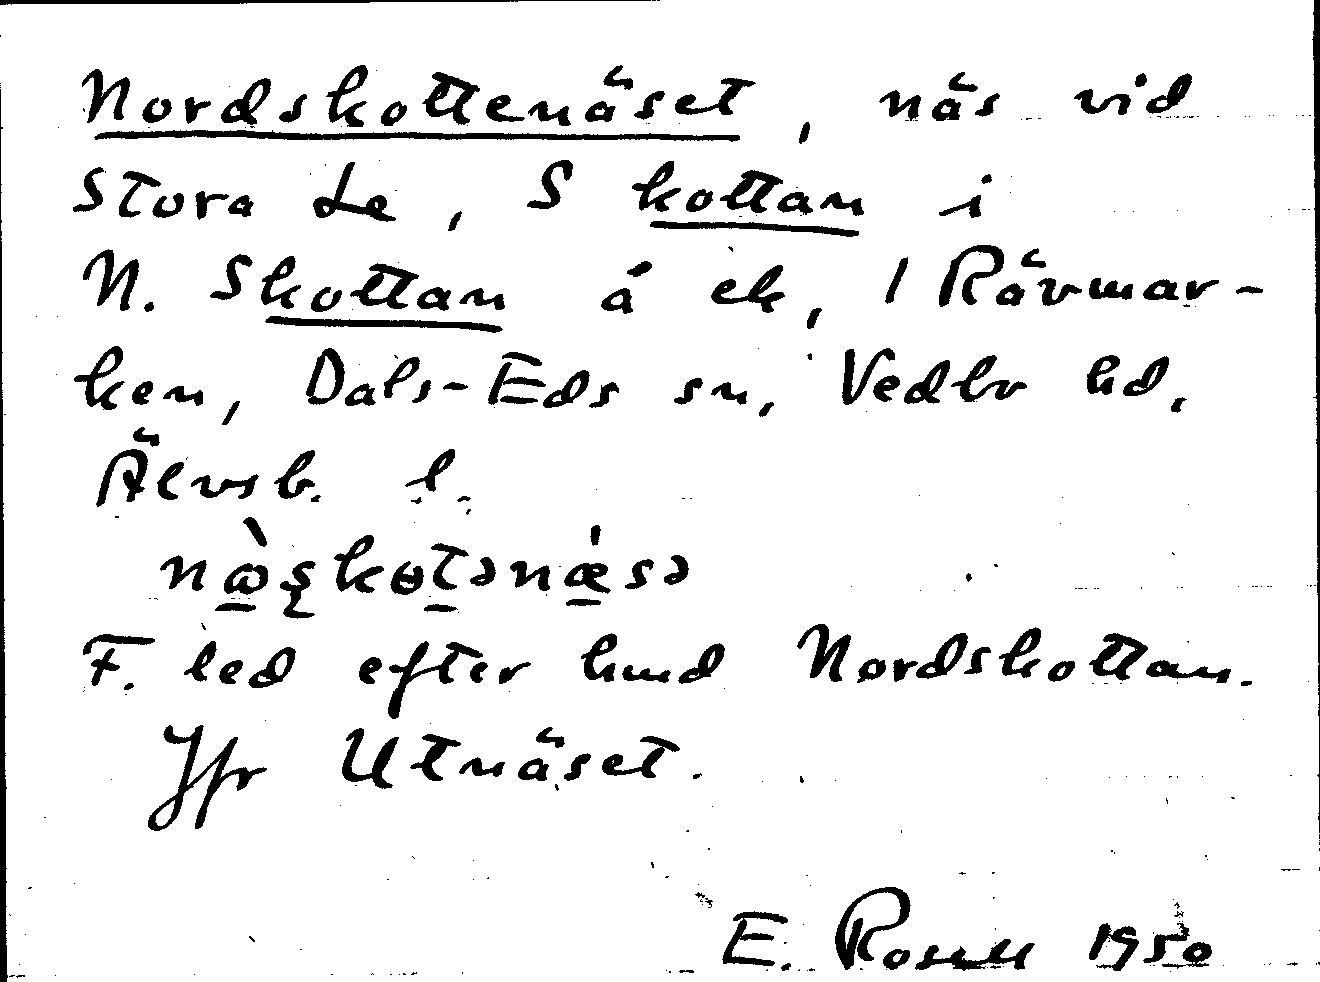 Nordskottenäset, näs vid
Stora Le, S kottan i
N. Skottan å ek, 1 Rävmar-
ken, Dals-Eds sn, Vedbo hd,
Älvsb. l.
nὼʂkɵtənǽsə
F. led efter hmd Nordskottan.
Jfr Utnäset.
E. Rosell 1950